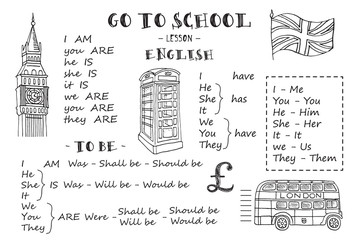 GO TO SCHOOL
- LESSON -
ENGLISH
I AM
you ARE
he IS
she IS
it IS
we ARE
you ARE
they ARE
I have
He
She } has
It
We
You } have
They
I - Me
You - You
He - Him
She - Her
It - It
we - Us
They - Them
- TO BE -
I AM Was - Shall be - Should be
He
She } IS Was - Will be - Would be
It
We
You } ARE Were - Shall be - Should be
They Will be - Would be
£
LONDON